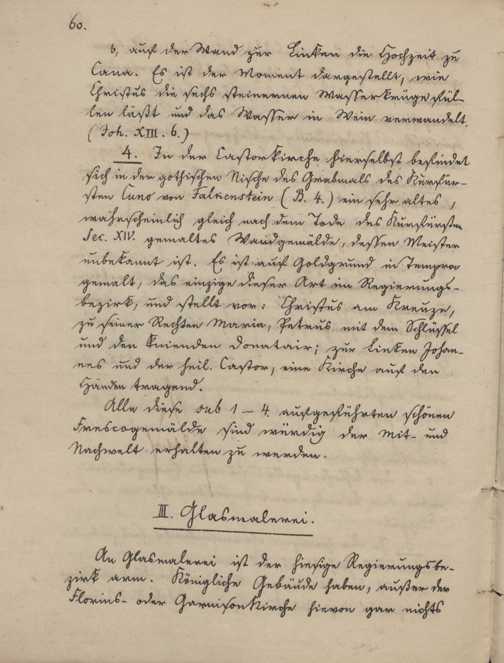 60.
b, auf der Wand zur Linken die Hochzeit zu
Cana. Es ist der Moment dargestellt, wie
Christus die sechs steinernen Wasserkrüge fül-
len läßt und das Wasser in Wein verwandelt.
(Joh. XIII. 6.)
4. In der Castorkirche hierselbst befindet
sich in der gothischen Nische des Grabmals des Kurfür-
sten Cuno von Falkenstein (B. 4.) ein sehr altes,
wahrscheinlich gleich nach dem Tode des Kurfürsten
Sec. XIV. gemaltes Wandgemälde, dessen Meister
unbekannt ist. Es ist auf Goldgrund in Tempera
gemalt, das einzige dieser Art im Regierungs-
bezirk, und stellt vor: Christus am Kreuze,
zu seiner Rechten Maria, Petrus mit dem Schlüssel
und den knienden Donatair; zur Linken Johan-
nes und der heil. Castor, eine Kirche auf den
Händen tragend.
Alle diese sub 1 – 4. aufgeführten schönen
Frescogemälde sind würdig der Mit- und
Nachwelt erhalten zu werden.
III. Glasmalerei.
An Glasmalerei ist der hiesige Regierungsbe-
zirk arm. Königliche Gebäude haben, außer der
Florins- oder Garnisonkirche hiervon gar nichts